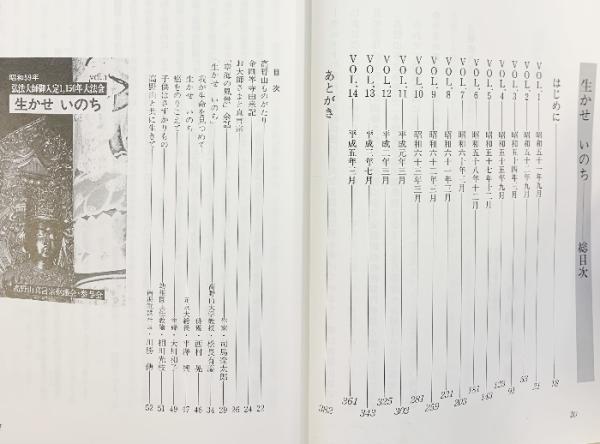 生かせ いのち 総目次
はじめに 18
VOL.1 昭和五十一年九月 21
VOL.2 昭和五十二年九月 53
VOL.3 昭和五十四年一月
VOL.4 昭和五十五年九月 123
VOL.5 昭和五十七年十二月 143
VOL.6 昭和五十八年十二月 181
VOL.7 昭和六十年二月 203
VOL.8 昭和六十一年三月 231
VOL.9 昭和六十二年三月
VOL.10 昭和六十三年三月 281
VOL.11 平成元年三月 303
VOL.12 平成二年三月 325
VOL.13 平成三年七月 343
VOL.14 平成五年三月 361
あとがき 382
目次
高野山ものがたり 22
金剛峯寺由来記 24
お大師さまと真言宗 26
「空海の風景」余話 作家・司馬遼太郎 29
生かせ いのち 高野山大学教授・松長有慶 34
我が生命を見つめて 俳優・西村 晃 46
生かせ いのち 47
癌をのりこえて 主婦・大川知子 49
子供はさずかりもの 51
高野山と共に生きて 川勝 傳 52
昭和59年
VOL.1
弘法大師御入定1,150年大法会
生かせ いのち